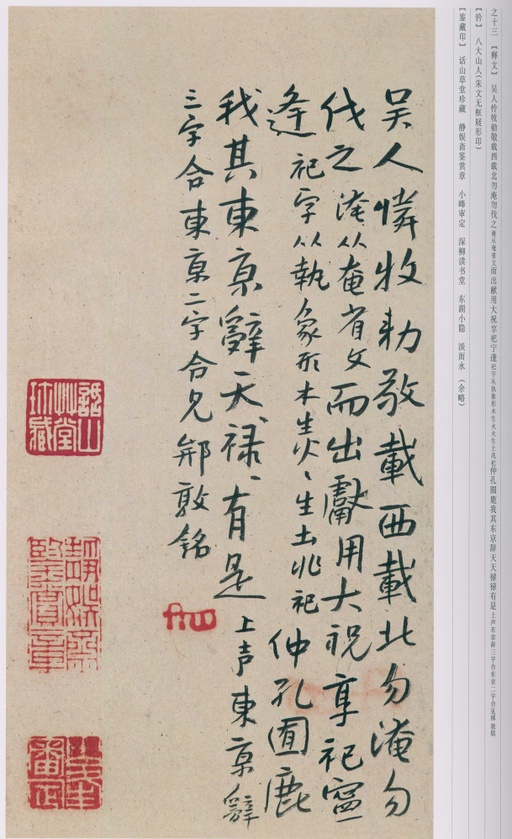 之十三 【释文】 吴人怜牧勑敬载西载北勿淹勿伐之淹从奄省文而出献用大祝享祀宁逢祀字从执象形木生火火生土兆祀仲孔囿鹿我其东京辞天天禄禄有是上声东京辞三字合东京二字合见邾敦铭
【钤】 八大山人(朱文无框屐形印)
【鉴藏印】 话山草堂珍藏 静娱斋鉴赏章 小峰审定 深柳读书堂 东湖小隐 淡而永 (余略)
吴人憐牧勑敬載西載北勿淹勿
伐之淹从奄省文而出獻用大祝享祀寧
逢祀字从執象形木生火、生土兆祀仲孔囿鹿
我其東京辭天、禄、有是上声東京辭
三字合東京二字合見邾敦銘
話山草堂珍藏
靜娛齋鑒賞章